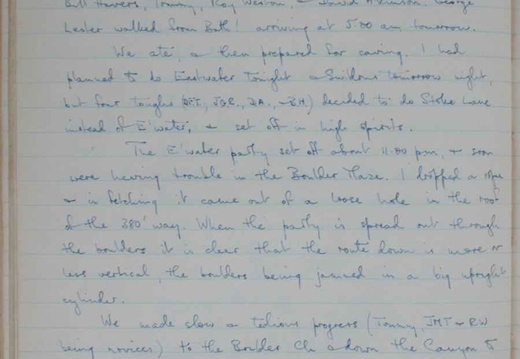 Bill Hawers, Tommy, Ray Weston, & David Atkinson. George
Lester walked from Bath! arriving at 5.00 am tomorrow.
We ate, & then prepared for caving. I had
planned to do Eastwater tonight & Swildons tomorrow night,
but four toughs (DFT, JGR, DA, BH) decided to do Stoke Lane
instead of E'water, & set off in high spirits.
The E'water party set off about 11.00 pm, & soon
were having trouble in the Boulder Maze. I dropped a
& in fetching it came out of a loose hole in the roof
of the 380' way. When the party is spread out through
the boulders it is clear that the route down is more or
less vertical, the boulders being jammed in a big upright
cylinder.
We made slow & tedious progress (Tommy, JMT & RW
being novices) to the Boulder Ch & down the Canyon to